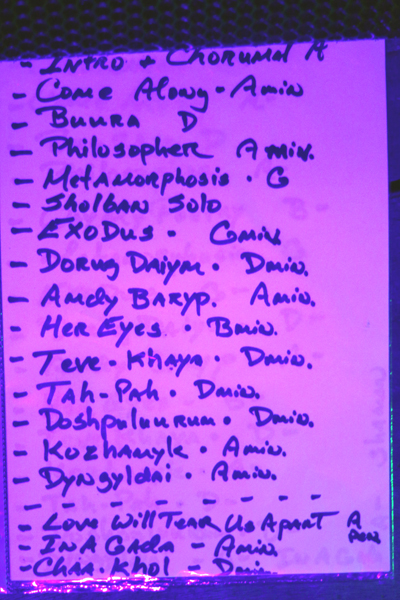 - Intro + Chorumal A
- Come Along - Amin
- Buura D
- Philosopher Amin.
- Metamorphosis · G
- Sholban Solo
- Exodus - Gmin.
- Dorug Daiym · Dmin.
- Amdy Baryp. Amin.
- Her Eyes · Bmin.
- Teve-Khaya · Dmin.
- Tah-Pah · Dmin.
- Doshpuluurum · Dmin.
- Kozhamyk · Amin.
- Dyngyldai · Amin.
- - - - - - - -
- Love Will Tear Us Apart A
- In A Gada - Amin
- Chira-Khol - Dmin.